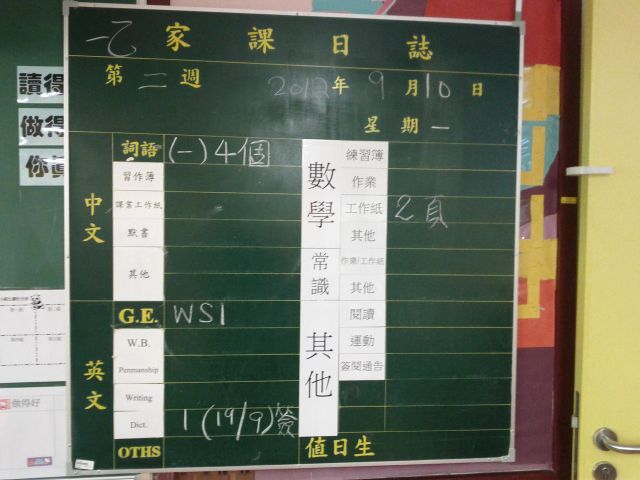 一乙 家課日誌
第 二 週 2012年 9月10日
星期一
讀得
做得
你真
中文
詞語 (一)4個
習作簿
課業工作紙
默書
其他
數學
練習簿
作業
工作紙 2頁
其他
常識
作業/工作紙
其他
英文
G.E. WS1
W.B.
Penmanship
Writing
Dict. 1 (19/9)簽
OTHS
其他
閱讀
運動
簽閱通告
值日生
做得好